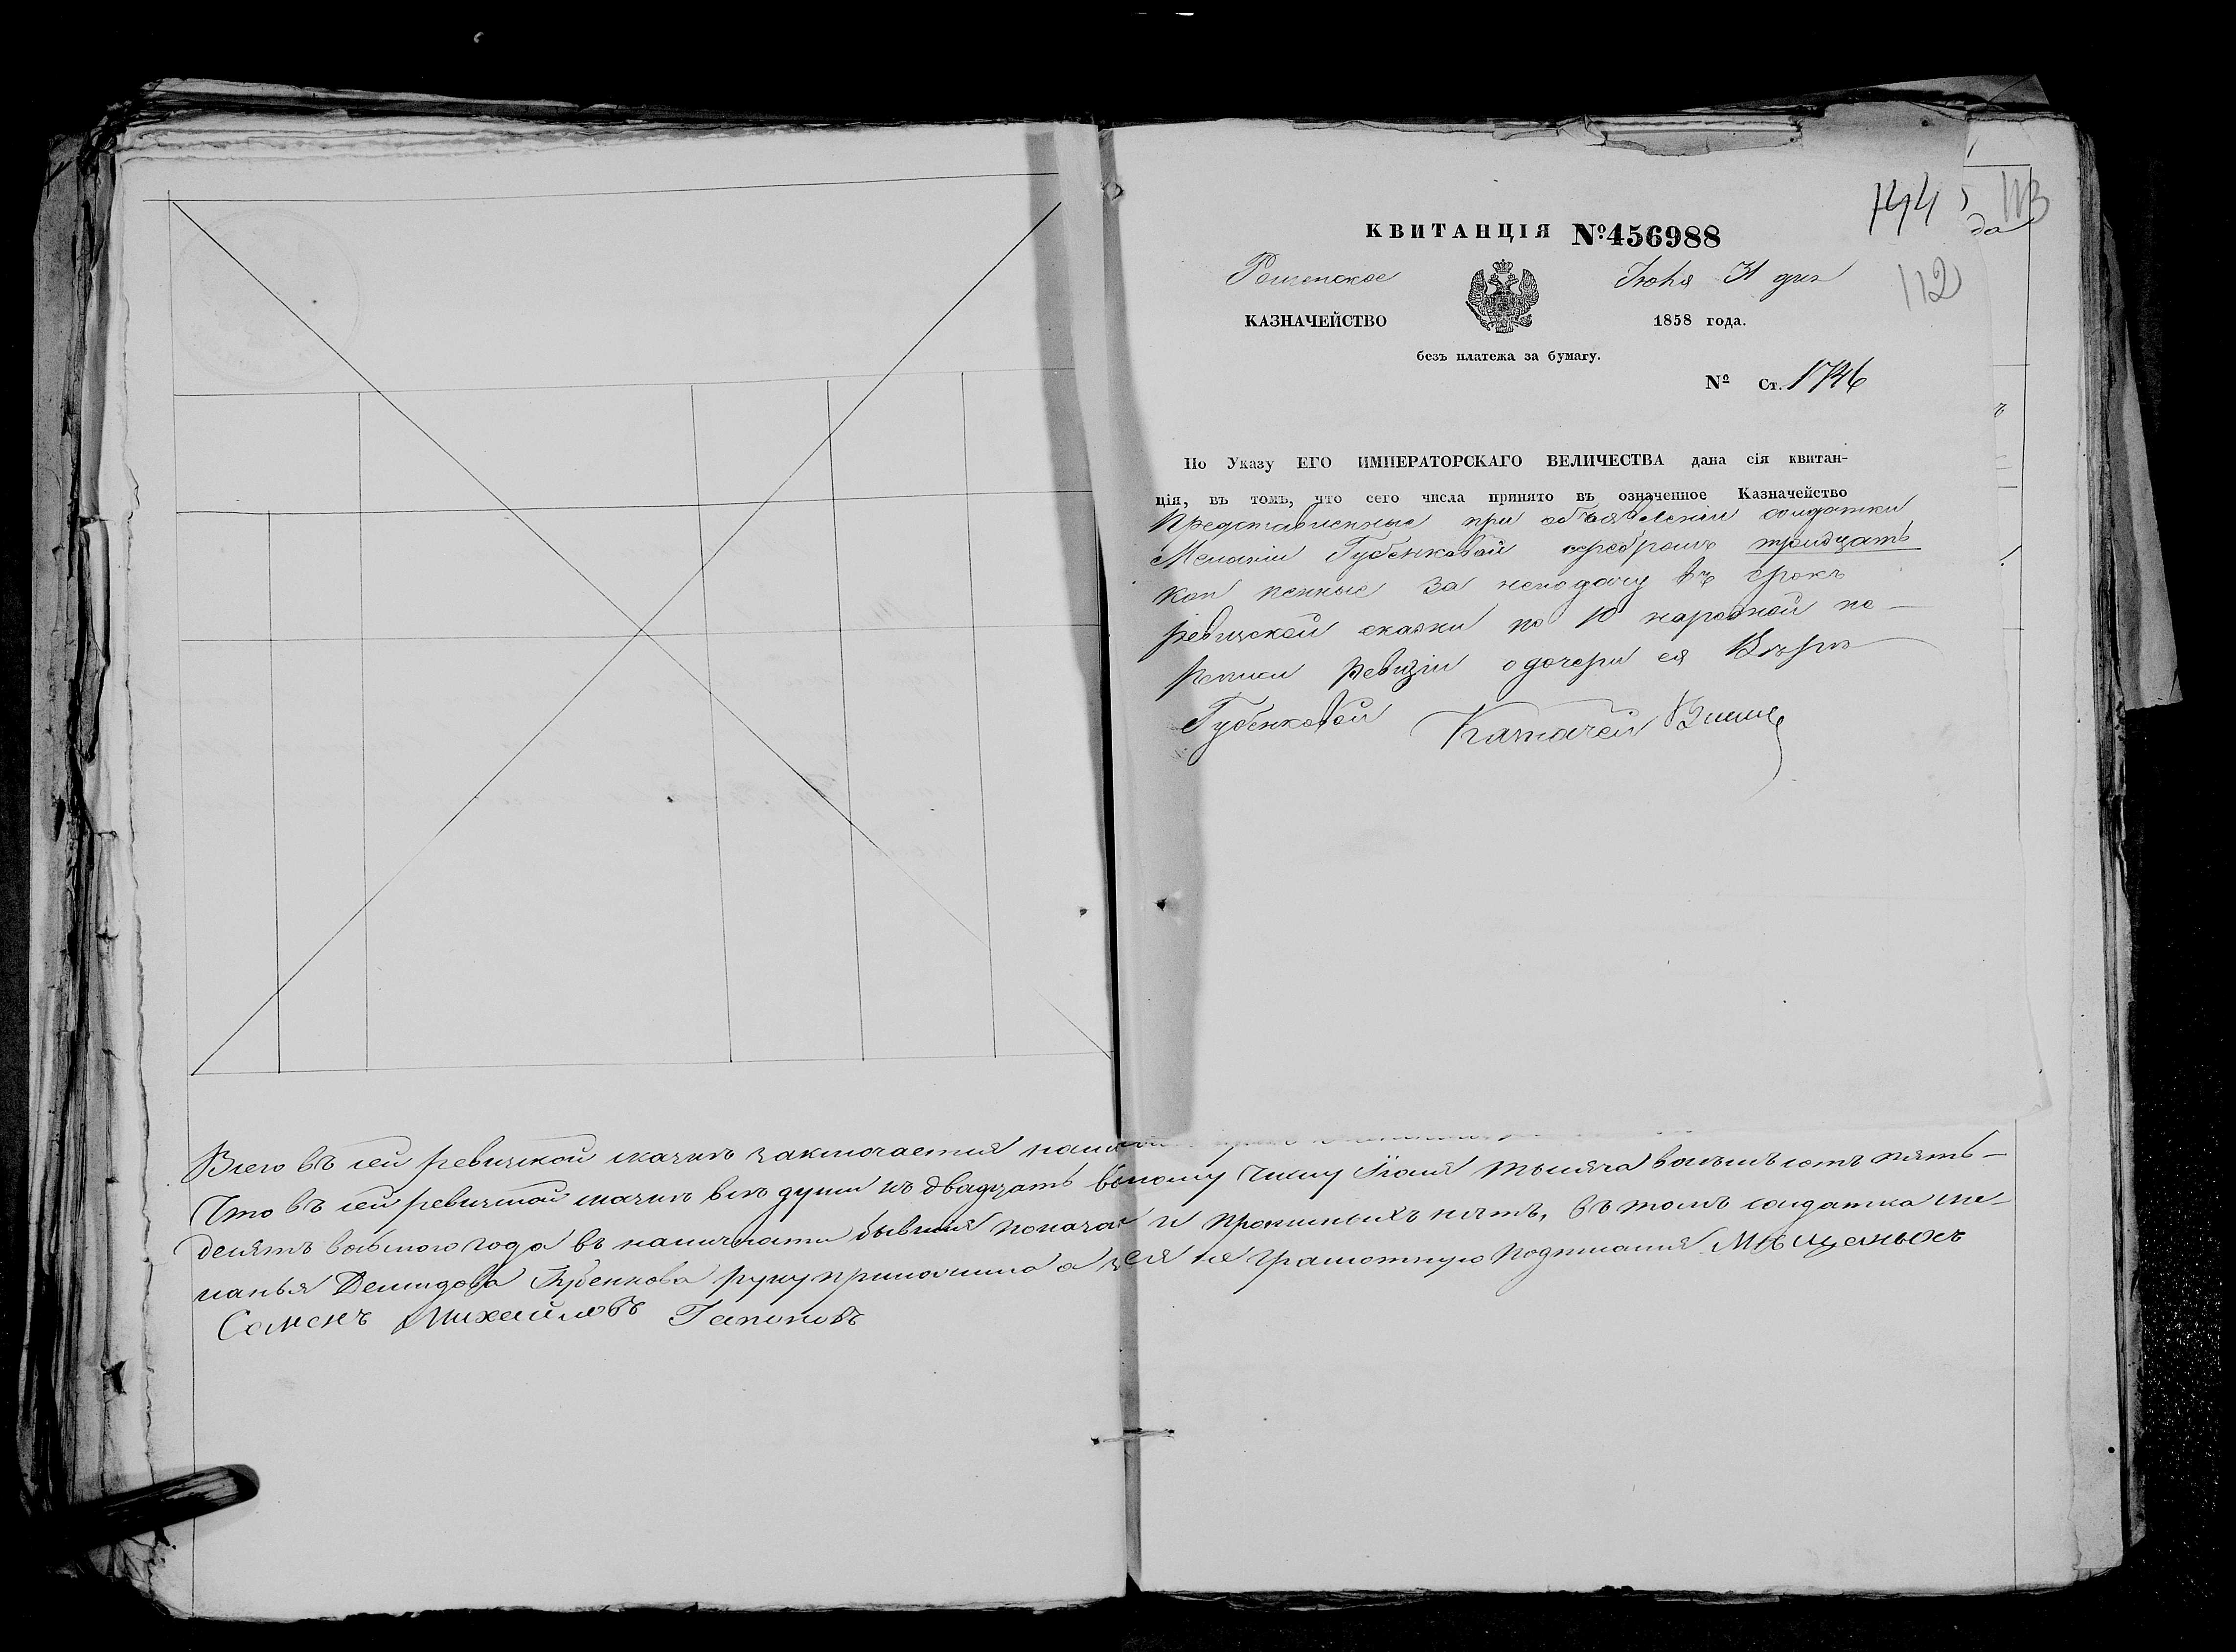 144
113
да
112
КВИТАНЦІЯ №456988
31 дня
КАЗНАЧЕЙСТВО
1858 года.
безъ платежа за бумагу.
№ Ст. 1746
По Указу ЕГО ИМПЕРАТОРСКАГО ВЕЛИЧЕСТВА дана сія квитан-
ція, въ томъ, что сего числа принято въ означенное Казначейство
Представленные при объявленіи солдатки
Меланіи Губенковой серебромъ тридцать
коп пенные за неподачу въ срокъ
ревизской сказки по 10 народной пе-
реписи ревизіи о дочери ея Вѣрѣ
Губенковой Казначей
Всего въ сей ревизской сказкѣ заключается
Что въ сей ревизской сказкѣ всѣ души къ двадцать восьмому числу Маія тысяча восемьсотъ пять-
десятъ восьмого года въ наличности бывшія показаны и прописныхъ нѣтъ, въ томъ солдатка ме-
ланья Демидова Губенкова руку приложила а за нея не грамотную подписался Мѣщанинъ
Семенъ Михайловъ Гапоновъ